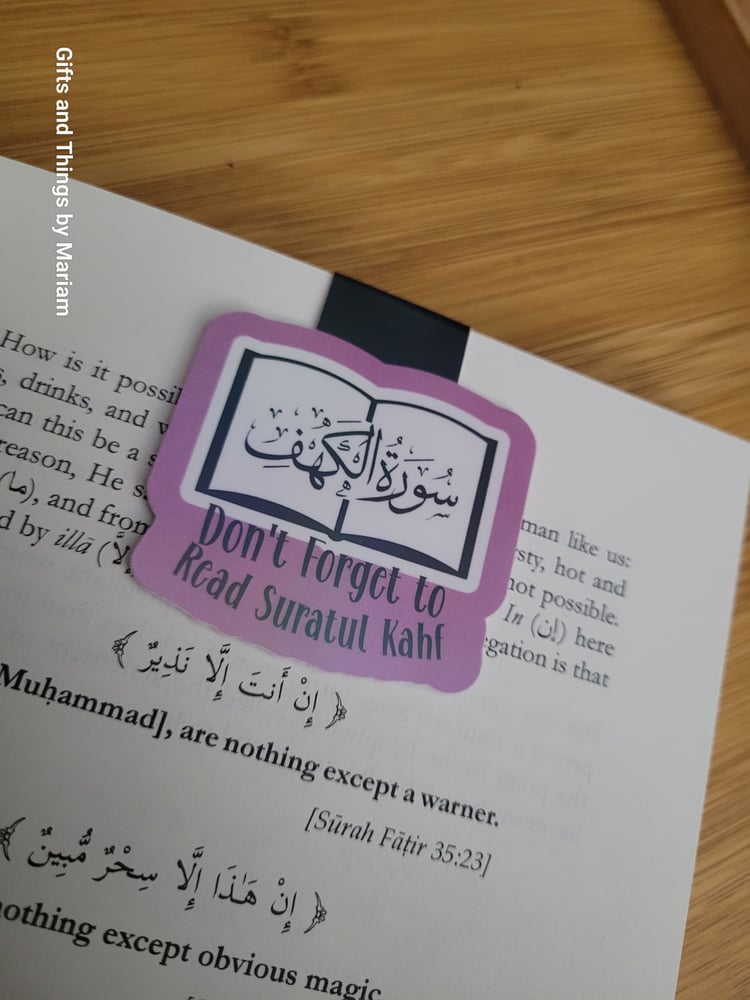 Gifts and Things by Mariam
How is it
drinks, and
can this be a
reason, He
(ما), and from
by illā
سُورَةُ الكَهْفِ
Don't Forget to
Read Suratul Kahf
man like us:
hot and
not possible.
In (إن) here
is that
﴿ إِنْ أَنتَ إِلَّا نَذِيرٌ ﴾
Muḥammad], are nothing except a warner.
[Sūrah Fāṭir 35:23]
﴿ إِنْ هَـٰذَا إِلَّا سِحْرٌ مُّبِينٌ ﴾
nothing except obvious magic